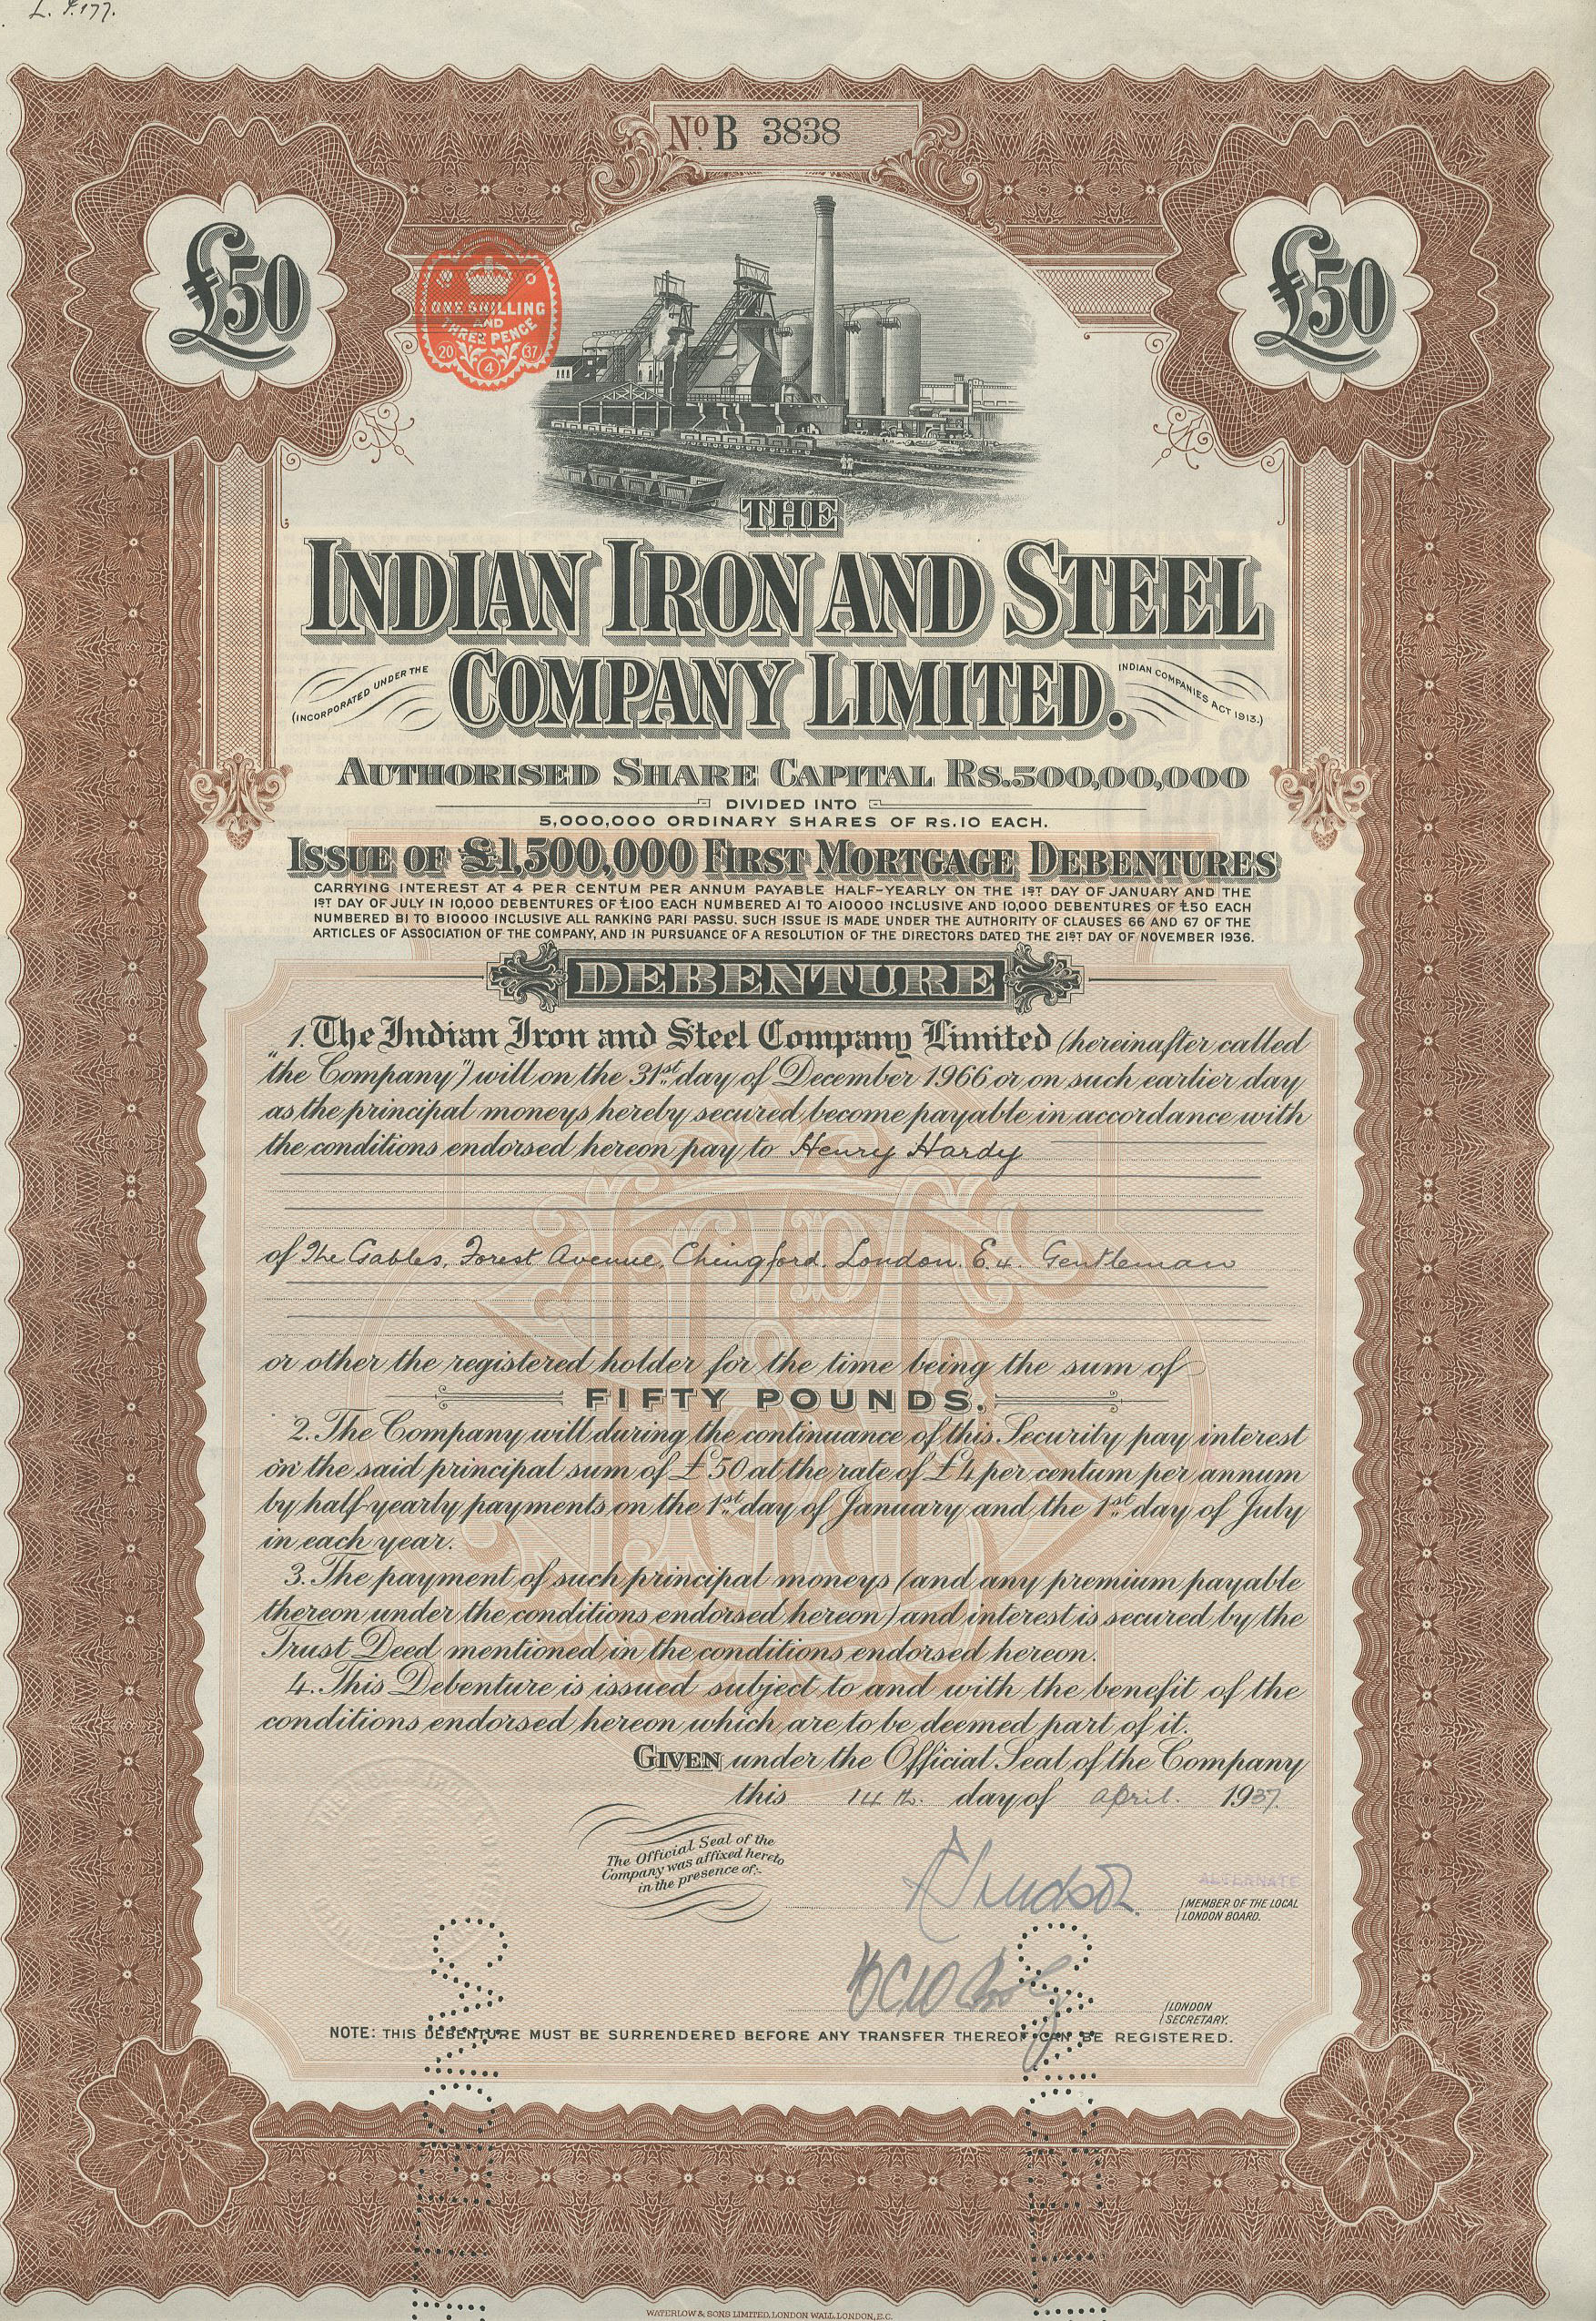 L. F.177.
No. B 3838
£50
£50
ONE SHILLING
AND
THREE PENCE
20 37
4
THE
INDIAN IRON AND STEEL
COMPANY LIMITED.
(INCORPORATED UNDER THE INDIAN COMPANIES ACT 1913.)
AUTHORISED SHARE CAPITAL RS.500,00,000
DIVIDED INTO
5,000,000 ORDINARY SHARES OF RS.10 EACH.
ISSUE OF £1,500,000 FIRST MORTGAGE DEBENTURES
CARRYING INTEREST AT 4 PER CENTUM PER ANNUM PAYABLE HALF-YEARLY ON THE 1ST DAY OF JANUARY AND THE
1ST DAY OF JULY IN 10,000 DEBENTURES OF £100 EACH NUMBERED A1 TO A10000 INCLUSIVE AND 10,000 DEBENTURES OF £50 EACH
NUMBERED B1 TO B10000 INCLUSIVE ALL RANKING PARI PASSU. SUCH ISSUE IS MADE UNDER THE AUTHORITY OF CLAUSES 66 AND 67 OF THE
ARTICLES OF ASSOCIATION OF THE COMPANY, AND IN PURSUANCE OF A RESOLUTION OF THE DIRECTORS DATED THE 21ST DAY OF NOVEMBER 1936.
DEBENTURE
1. The Indian Iron and Steel Company Limited (hereinafter called
"the Company") will on the 31st day of December 1966 or on such earlier day
as the principal moneys hereby secured become payable in accordance with
the conditions endorsed hereon pay to Henry Hardy
of The Gables, Forest Avenue, Chingford. London. E.4. Gentleman
or other the registered holder for the time being the sum of
FIFTY POUNDS.
2. The Company will during the continuance of this Security pay interest
on the said principal sum of £50 at the rate of £4 per centum per annum
by half-yearly payments on the 1st day of January and the 1st day of July
in each year.
3. The payment of such principal moneys (and any premium payable
thereon under the conditions endorsed hereon) and interest is secured by the
Trust Deed mentioned in the conditions endorsed hereon.
4. This Debenture is issued subject to and with the benefit of the
conditions endorsed hereon which are to be deemed part of it.
GIVEN under the Official Seal of the Company
this 14th. day of April. 1937.
The Official Seal of the
Company was affixed hereto
in the presence of:-
ALTERNATE
MEMBER OF THE LOCAL
LONDON BOARD.
LONDON
SECRETARY.
NOTE: THIS DEBENTURE MUST BE SURRENDERED BEFORE ANY TRANSFER THEREOF CAN BE REGISTERED.
WATERLOW & SONS LIMITED, LONDON WALL, LONDON, E.C.